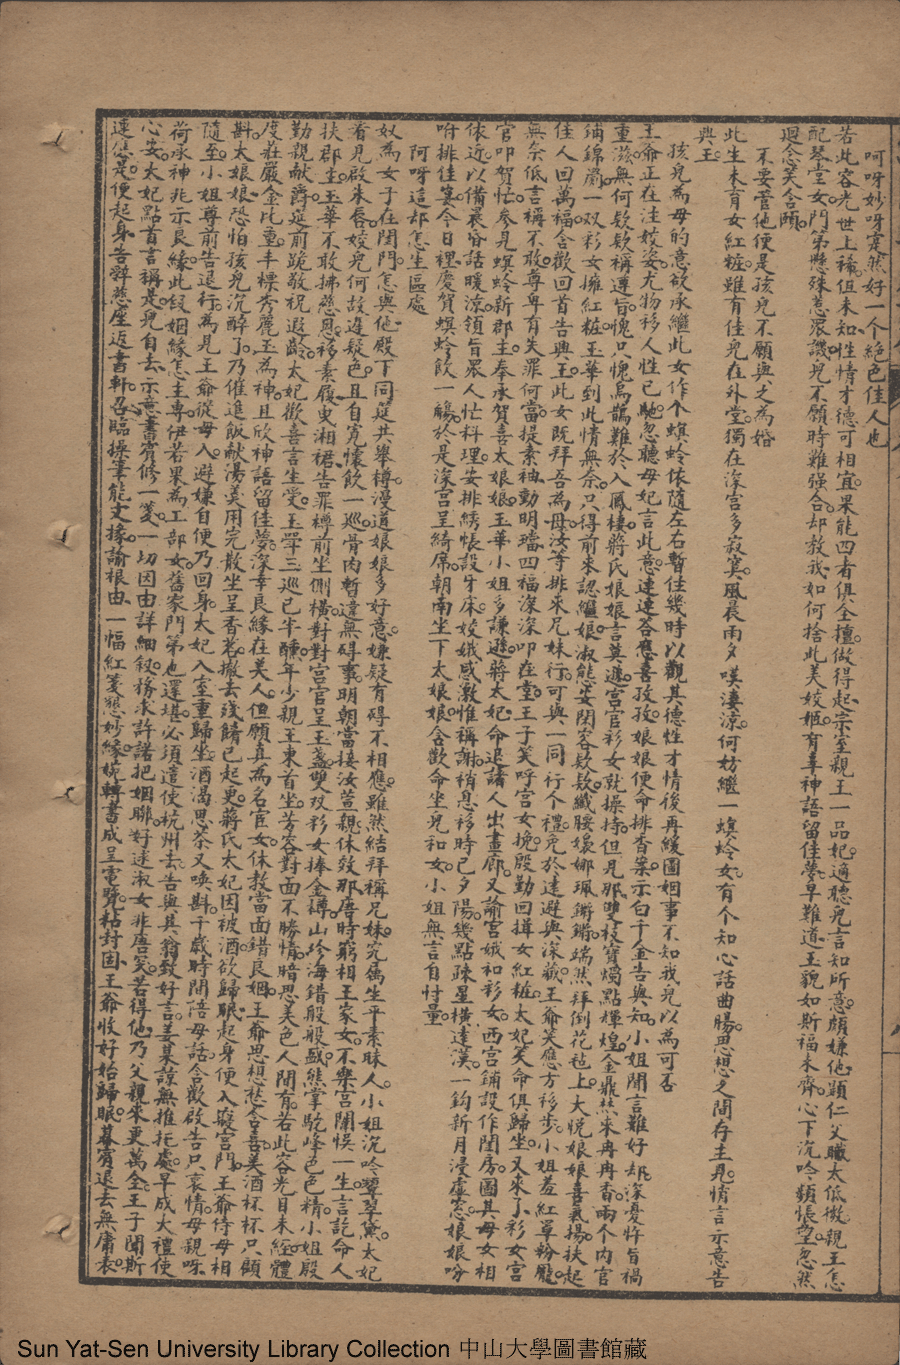 呵呀妙呀寔然好一个絕色佳人也
若此容光世上稀但未知性情才德可相宜果能四者俱全擅做得起宗室親王一品妃適聽兒言知所意顏嫌他顯仁父職太低微親王怎
配琴堂女門第懸殊惹眾譏兒不願時難强合却教我如何捨此美姣姬有事神語留佳夢早難道玉貌如斯福未齊心下沉吟頻悵望忽然
迴念笑含頤
不要管他便是孩兒不願與之為婚
此生未育女紅粧雖有佳兒在外堂獨在深宫多寂寞風晨雨夕嘆凄涼何妨繼一螟蛉女有个知心話曲腸思想之間存主見情言示意告
與王
孩兒為母的意欲承繼此女作个螟蛉依隨左右暫住幾時以觀其德性才情後再緩圖姻事不知我兒以為可否
王爺正在注姣姿尤物移人性已馳忽聽母妃言此意連連答應喜孜孜娘娘便命排香案示白千金告與知小姐聞言難好却深憂忤旨禍
重滋無何欵欵稱遵旨愧只愧烏鵲難於入鳳棲蔣氏娘娘言莫遲宫官彩女就操持但見那雙枝寶燭點煇煌金鼎焚來冉冉香兩个内官
鋪錦罽一双彩女擁紅粧玉華到此情無奈只得前來認繼娘淑態安閒容欵欵纖腰嬝娜珮鏘鏘端然拜倒花毡上大悅娘娘喜氣揚扶起
佳人回萬福含歡回首告與王此女既拜吾為母汝等排來兄妹行可與一同行个禮免於遠避與深藏王爺笑應方移步小姐羞紅單粉龎
無奈低言稱不敢尊卑有失罪何當提素袖動明璫四福深深叩在堂王子笑呼宫女挽殷勤回揖女紅粧太妃笑命俱歸坐又來了彩女宫
官叩賀忙參見螟蛉新郡主奉承賀喜太娘娘玉華小姐多謙遜蔣太妃命退諸人出畫廊又諭宫娥和彩女西宫鋪設作閨房圖其母女相
依近以備晨昏話暖涼領旨眾人忙料理安排綉帳設牙床姣娥感激惟稱謝稍息移時已夕陽幾點疎星橫遠漢一鈎新月浸虛窓娘娘吩
咐排佳宴今日裡慶賀螟蛉飲一觴於是深宫呈綺席朝南坐下太娘娘含歡命坐兒和女小姐無言自忖量
阿呀這却怎生區處
奴為女子在閨門怎與他殿下同筵共舉樽漫道娘娘多好意嫌疑有碍不相應雖然結拜稱兄妹究属生平素昧人小姐沉吟顰翠黛太妃
看見啟朱唇姣兒何故進疑色且自寛懷飲一巡骨肉暫違無碍事明朝當接汝萱親休效那唐時窮相王家女不樂宫闈悞一生言訖命人
扶郡主玉華不敢拂慈恩移素履曳湘裙告罪樽前坐側橫對對宫官呈玉盞雙双彩女捧金罇山珍海錯般般盛熊掌駝峰色色精小姐殷
勤親献爵筵前跪敬祝遐齡太妃歡喜言生受玉斝三巡已半醺年少親王東首坐芳容對面不勝情暗思美色人間有若此容光目未經體
度莊嚴金比重丰標秀麗玉為神且欣神語留佳夢深幸良緣在美人但願真為名宦女休教當面錯良姻王爺思想愁含喜美酒杯杯只顧
斟太娘娘恐怕孩兒沉醉了乃催進飯献湯羮用完散坐呈香茗撤去殘餚已起更蔣氏太妃因被酒欲歸眠起身便入寢宫門王爺侍母相
隨至小姐尊前告退行為見王爺從母入避嫌自便乃回身太妃入室重歸坐酒渴思茶又喚斟千歲時間陪母話含歡啟告只哀情母親呀
荷承神兆示良緣此叚姻緣怎主專伊若果為工部女舊家門第也還堪必須遣使杭州去告與其翁致好言姜某諒無推托處早成大禮使
心安太妃點首言稱是兒自去示意書賓修一箋一切因由詳細叙務求許諾把姻聯好逑淑女非唐突若得他乃父親來更萬全王子聞斯
連偲是便起身告辭慈座返書軒召臨操筆能文掾諭根由一幅紅箋懇妙緣婉轉書成呈電覽粘封固王爺收好始歸眠暮賓退去無庸表
Sun Yat-Sen University Library Collection 中山大學圖書館藏